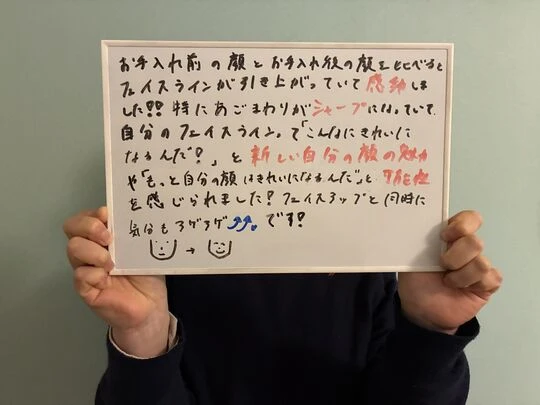 お手入れ前の顔とお手入れ後の顔を比べると
フェイスラインが引き上がっていて感動しま
した!!特にあごまわりがシャープになっていて、
自分のフェイスラインって「こんなにきれいに
なるんだ?」と新しい自分の顔の魅力
や「もっと自分の顔はきれいになるんだ」と可能性
を感じられました!フェイスアップと同時に
気分もアゲアゲ⤴⤴。です!